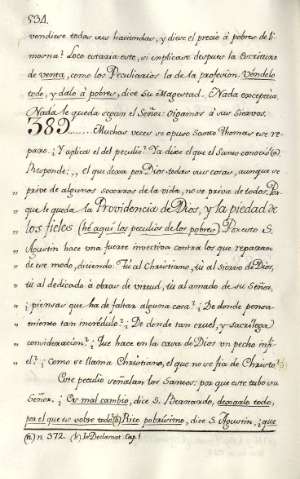 534.
vendiese todas sus haciendas, y diese el precio à pobres de li-
mosna? Loco estaria este, si implicase despues la Escritura
de venta, como los Peculiarios la de la profesion. Vendelo
todo, y dalo à pobres, dice Su Magestad. Nada exceptua
Nada le queda oigan el Señor: oigamos à sus Siervos.
389.... Muchas veces se opuso Santo Thomas ese re-
paro. ¿Y aplica el del peculio? Ya dixe el que el Santo conoció
Responde: ,,, el que dexa por Dios todas sus cosas, aunque se
,, prive de algunos socorros de la vida, no se priva de todos. Por
,, que le queda la Providencia de Dios, y la piedad de
,, los fieles (hé aqui los peculios de los pobres) Por esto S.
,, Agustin hace una fuerte invectiva contra los que reparan
,, de ese modo, diciendo. Tú al Christiano, tú al Siervo de Dios,
,, tú al dedicado à obras de virtud, tú al amado de su Señor,
,, ¿piensas que ha de faltar alguna cosa? ¿De donde pensa-
,, miento tan incrédulo? ¿De donde tan cruel, y sacrílega
,, consideracion? ¿Que hace en la casa de Dios un pecho infi-
,, el? ¿como se llama Christiano, el que no se fia de Christo?
Este peculio señalan los Santos: por que este tubo su
Señor. ¿Es mal cambio, dice S. Bernardo, dexarlo todo,
por el que es sobre todo? (b) Rico pobrísimo, dice S. Agustin, ¿que
(a) n. 372. (b) de Declamat. Cap. 1